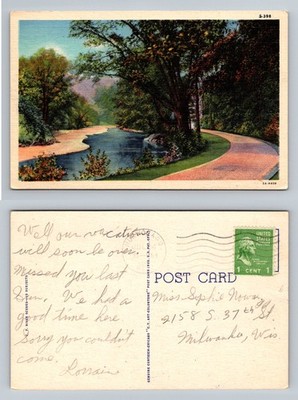 Well our vacations
will soon be over.
Missed you last
Sun. We had a
good time here
Sorry you couldn't
come.
Lorrain
POST CARD
UNITED STATES
1 CENT 1
Miss Sophie
2158 S. 37th St.
Milwaukee, Wis